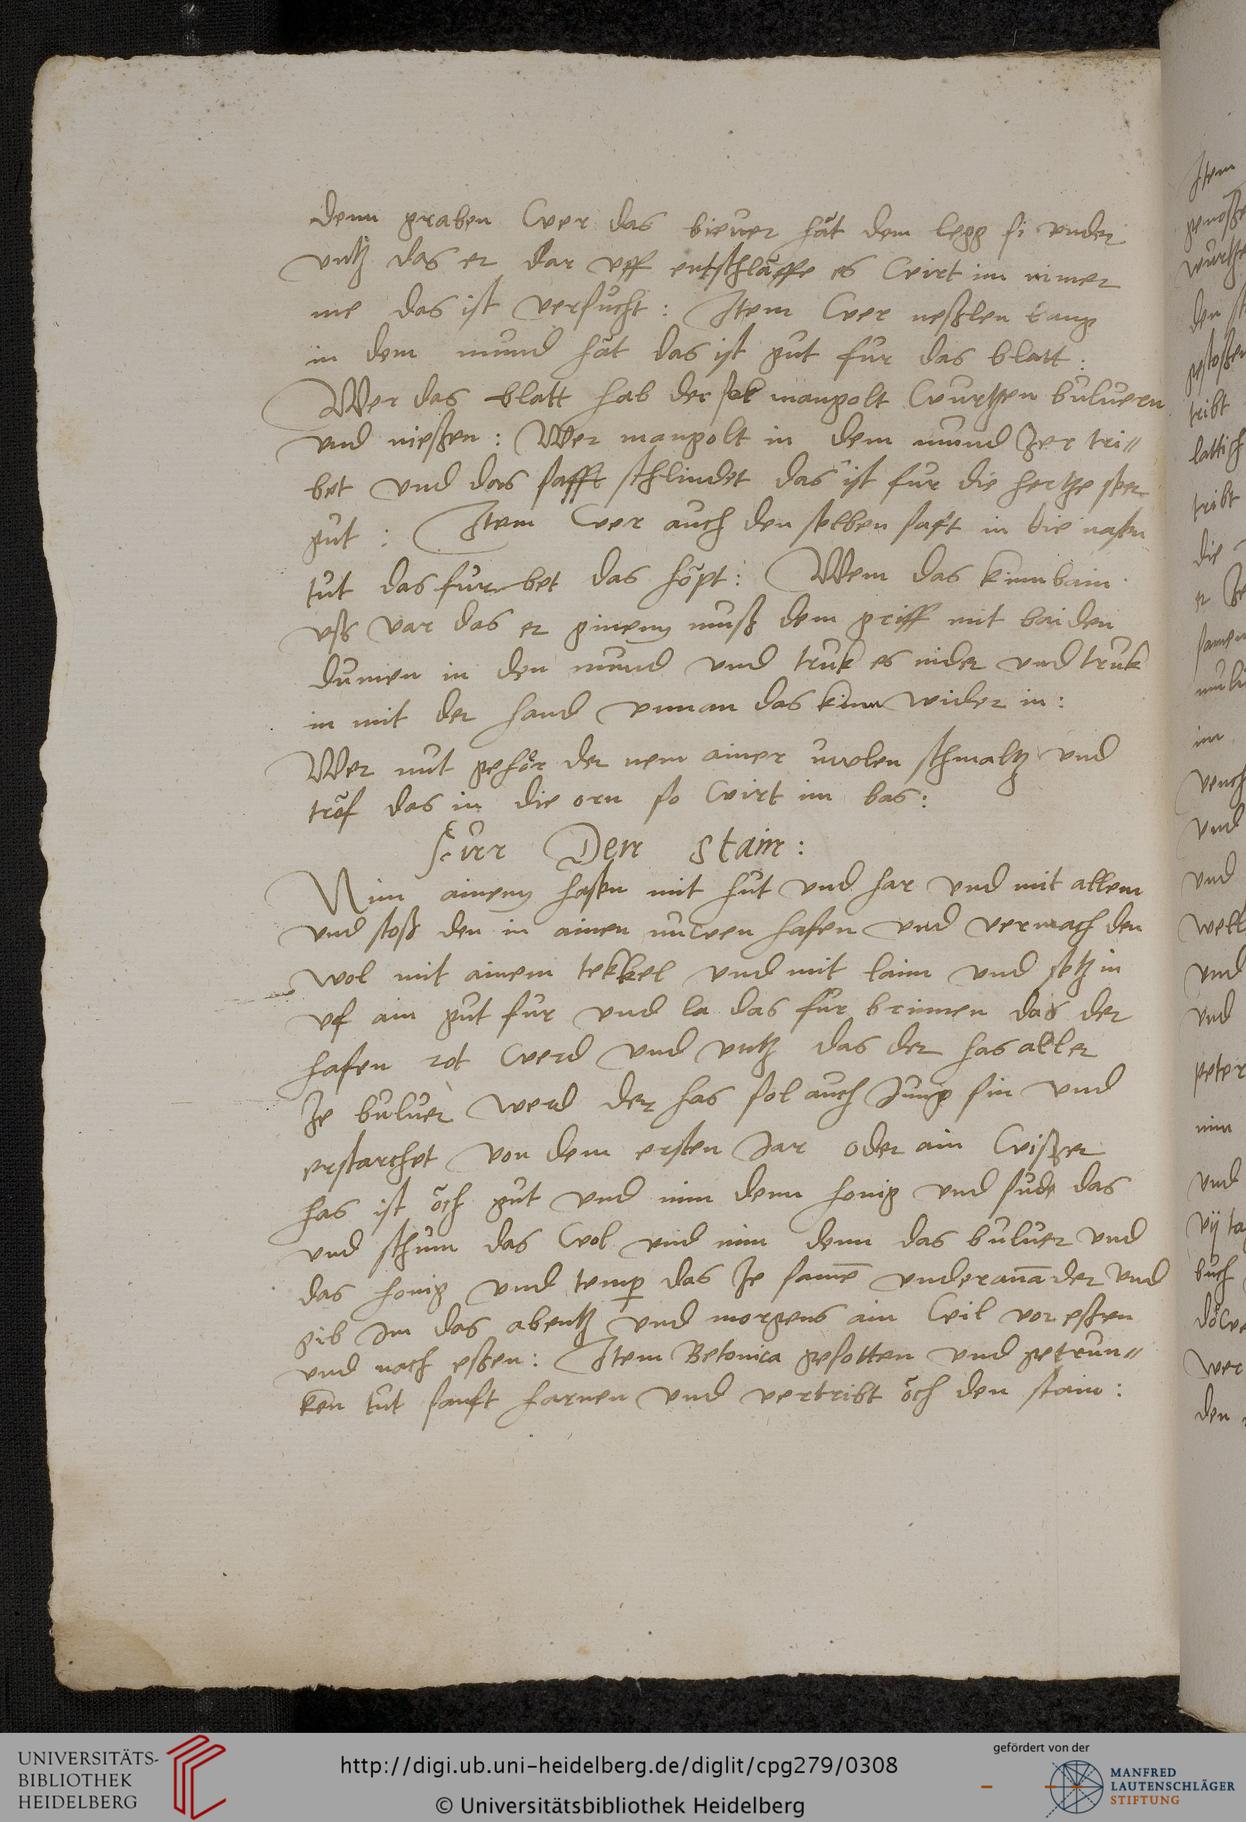 denn graben Wer das biever hat dem legg si under
untz das er dar uff entschlaffe es wirt im nimer
me das ist versucht : Item Wer neßlen lang
in dem mund hat das ist gut fur das blatt :
Wer das blatt hab der sol mangolt wurtzen bulvern
und nießen : Wer mangolt in dem mund zer tri〃
bet und das safft schlindet das ist fur die hertze sper
gut : Item Wer auch den selben saft in die nasen
tut das furbet das höpt : Wem das kinnbain
uß var das er ginem muß dem griff mit baiden
dumen in den mund und truk es nider und truk
in mit der hand unnan das kinn wider in :
Wer nut gehör der nem ainer schmaltz und
tröf das in die orn so wirt im bas :
Furr Den Stain :
Nim ainem hasen mit hut und har und mit allem
und stoß den in ainen nuwen hafen und vermach den
wol mit ainem tekkel und mit laim und setz in
uf ain gut fur und la das fur brinnen das der
hafen rot werd und untz das der has aller
ze bulver werd der has sol auch Jung sin und
erstarchet von dem ersten Jar oder ain wisser
has ist öch gut und nim denn honig und sude das
und schum das wol und nim denn das bulver und
das honig und temp das ze samē underanāder und
gib Im das abentz und morgens ain wil vor essen
und nach essen : Item Betonica gesotten und getrun〃
ken tut sanft harnen und vertribt öch den stain :
Item
den
tribt
tribt
die
im
und
und
und
und
nim
und
buch
wer
den
UNIVERSITÄTS-
BIBLIOTHEK
HEIDELBERG
http://digi.ub.uni-heidelberg.de/diglit/cpg279/0308
© Universitätsbibliothek Heidelberg
gefördert von der
MANFRED
LAUTENSCHLÄGER
STIFTUNG